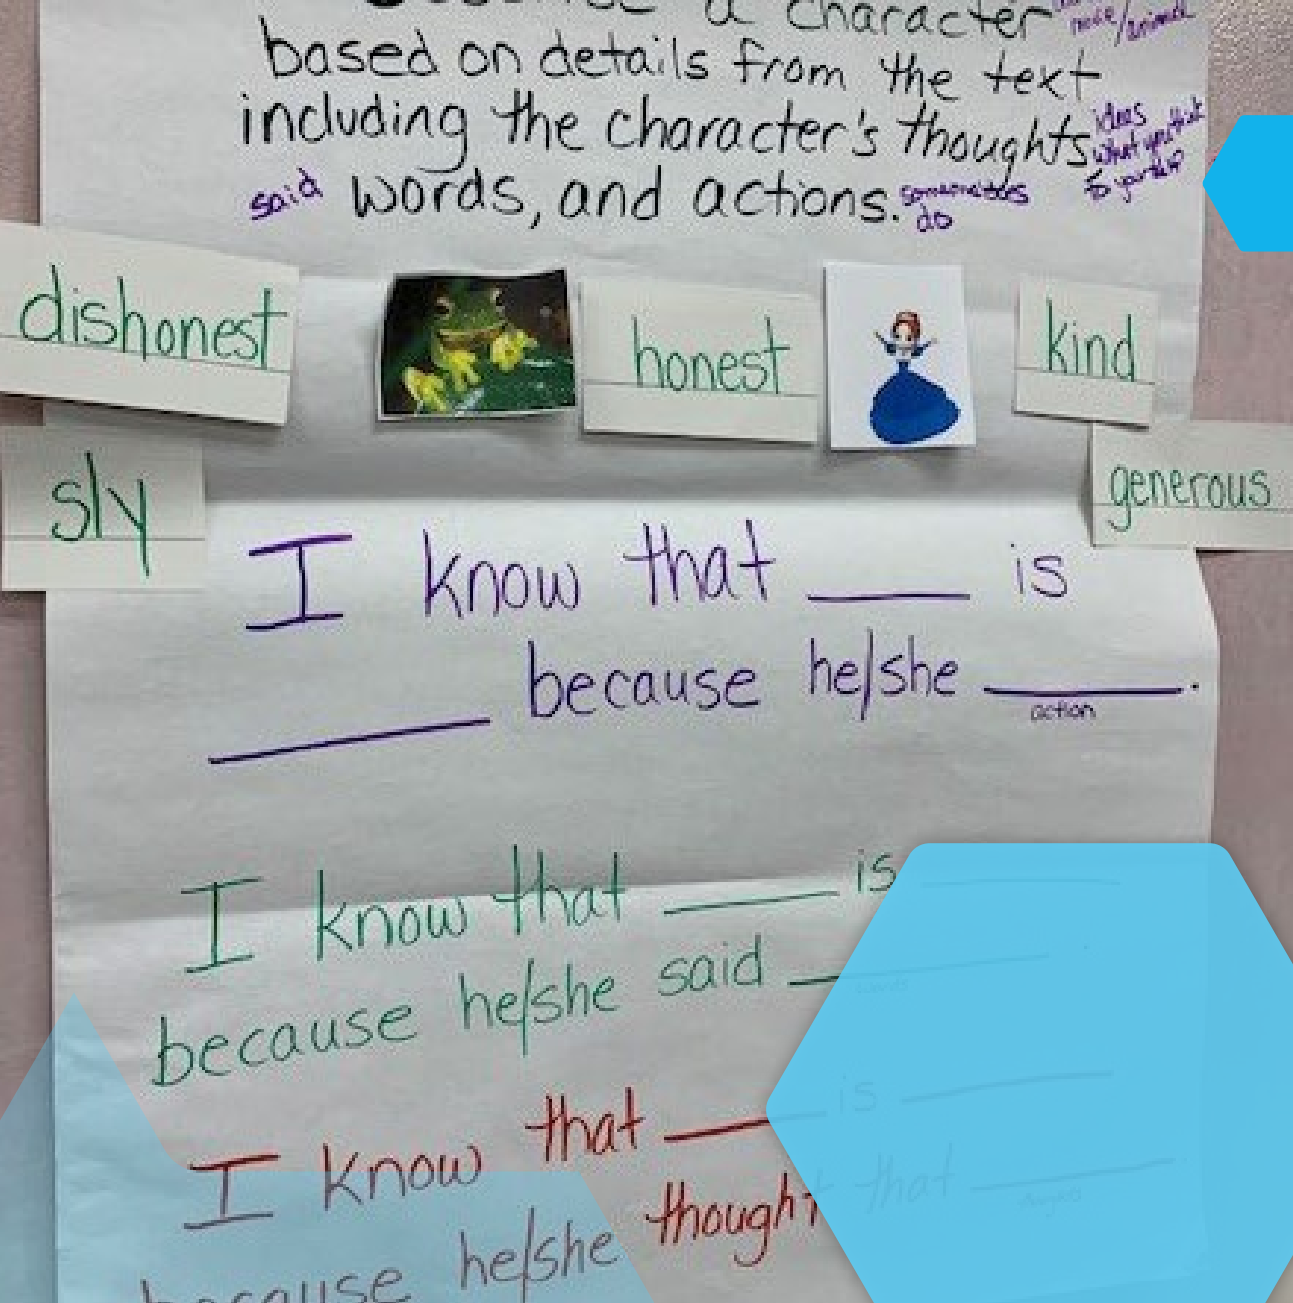 a character
nose/animal
based on details from the text
including the character's thoughts
ideas
what you think
to yourself
said words, and actions. someone does
do
dishonest honest kind
sly generous
I know that ____ is
____ because he/she ____.
action
I know that ____ is ____
because he/she said ____
I know that ____ is ____
because he/she thought that ____
thoughts